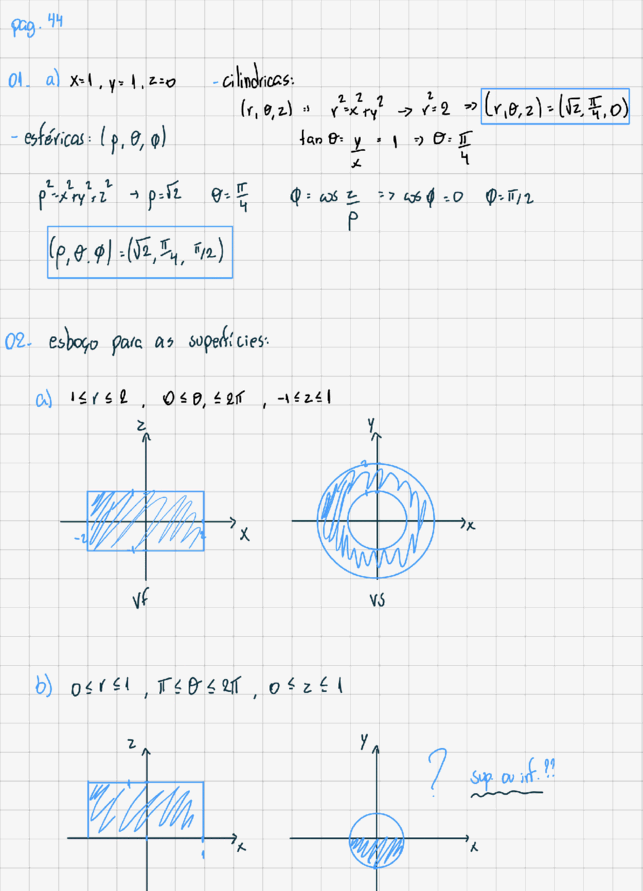 pag. 44
01. a) x=1, y=1, z=0 - cilíndricas:
(r, θ, z) => r²=x²+y² → r²=2 => (r,θ,z)=(√2, π/4, 0)
- esféricas: (ρ, θ, φ) tan θ = y/x = 1 => θ=π/4
ρ²=x²+y²+z² → ρ=√2 θ=π/4 φ = cos z/ρ => cos φ=0 φ=π/2
(ρ, θ, φ)=(√2, π/4, π/2)
02. esboço para as superfícies:
a) 1≤r≤2, 0≤θ,≤2π, -1≤z≤1
z y
2
1
-2 2 x x
vf vs
b) 0≤r≤1, π≤θ≤2π, 0≤z≤1
z y
? sup. ou inf.??
1
x x
1